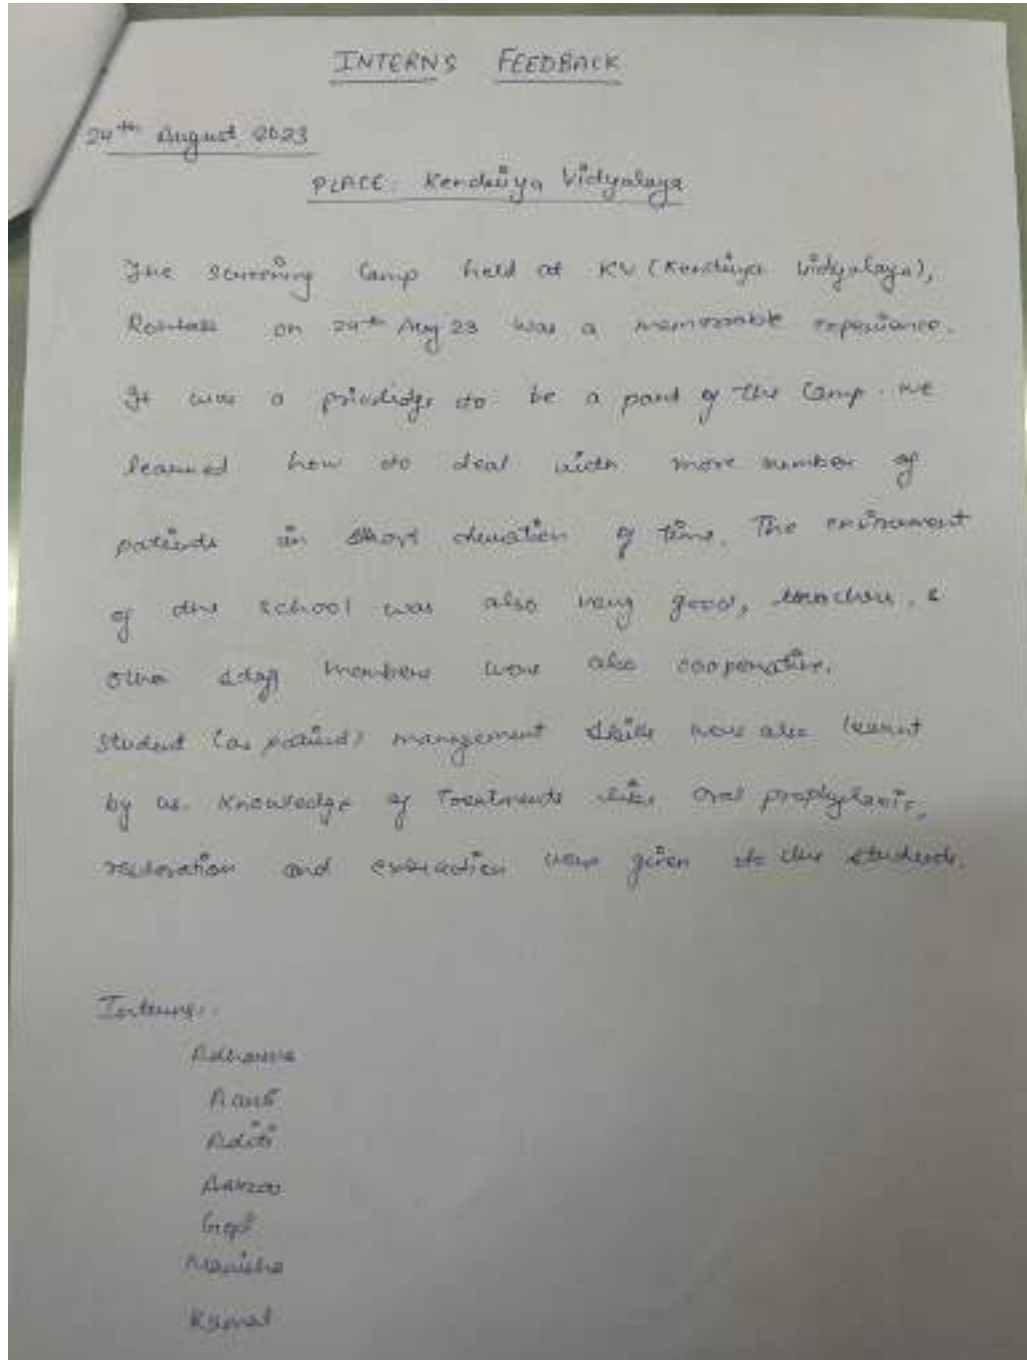 INTERNS FEEDBACK
24th August 2023
PLACE: Kendriya Vidyalaya
The screening Camp held at KV (Kendriya Vidyalaya),
on 24th Aug 23 was a memorable experience.
It was a priviledge to be a part of the Camp. We
learned how to deal with more number of
patients in short duration of time. The environment
of the school was also very good, teachers, &
other staff members were also cooperative.
Student (as patient) management skills were also learnt
by us. Knowledge of Treatments like oral prophylaxis,
restoration and extraction were given to the students.
Interns:-
Aditi
Aarzoo
Gopi
Manisha
Komal